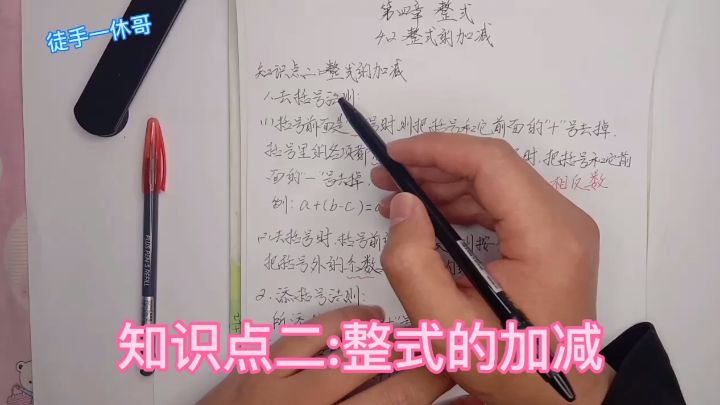 徒手一休哥
第四章 整式
4.2 整式的加减
知识点二:整式的加减
1.去括号法则:
(1)括号前面是 号时,则把括号和它前面的"+"号去掉,
括号里的各项都 时,把括号和它前
面的"一"号去掉, 相反数
例: a+(b-c)=
去括号时,括号前 则按
把括号外的
2.添括号法则:
知识点二:整式的加减